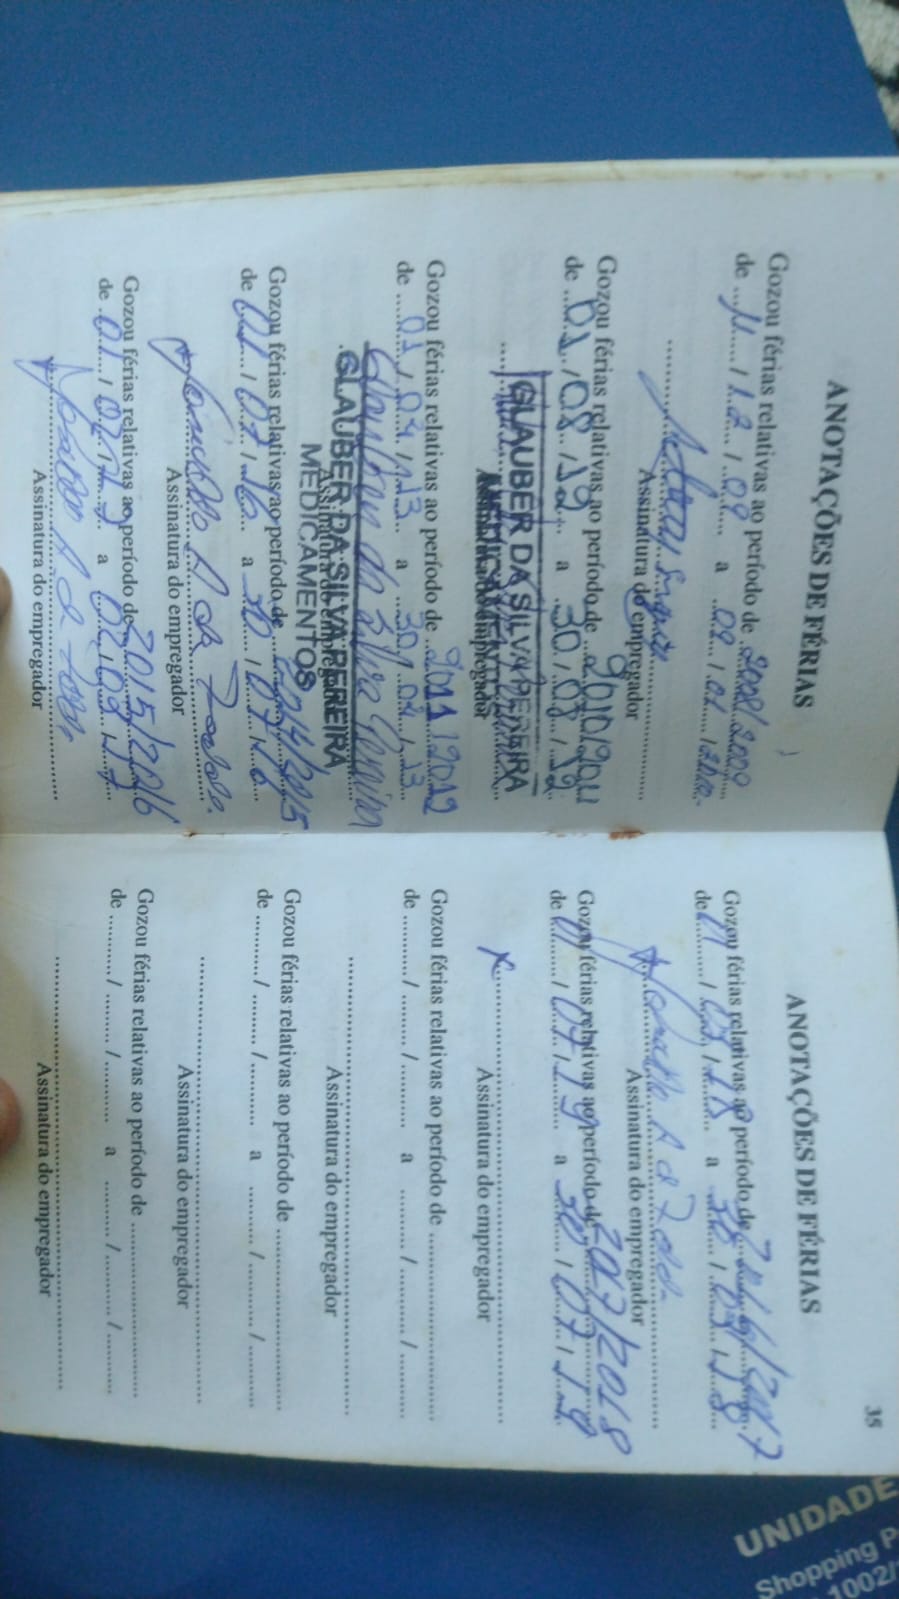 ANOTAÇÕES DE FÉRIAS
Gozou férias relativas ao período de 2008/2009
de 11 / 12 / 09 a 09 / 01 / 2010
Assinatura do empregador
Gozou férias relativas ao período de 2010/2011
de 01 / 08 / 12 a 30 / 08 / 12
GLAUBER DA SILVA PEREIRA
MEDICAMENTOS
Assinatura do empregador
Gozou férias relativas ao período de 2011/2012
de 01 / 04 / 13 a 30 / 04 / 13
Glauber da Silva Pereira
GLAUBER DA SILVA PEREIRA
Assinatura do empregador
MEDICAMENTOS
Gozou férias relativas ao período de 2014/2015
de 01 / 07 / 16 a 30 / 07 / 16
Assinatura do empregador
Gozou férias relativas ao período de 2015/2016
de 01 / / 17 a / 09 / 17
Assinatura do empregador
35
ANOTAÇÕES DE FÉRIAS
Gozou férias relativas ao período de 2016/2017
de 01 / 03 / 18 a 30 / 03 / 18
Assinatura do empregador
Gozou férias relativas ao período de 2017/2018
de 01 / 07 / 19 a 30 / 07 / 19
x
Assinatura do empregador
Gozou férias relativas ao período de
de / / a / /
Assinatura do empregador
Gozou férias relativas ao período de
de / / a / /
Assinatura do empregador
Gozou férias relativas ao período de
de / / a / /
Assinatura do empregador
UNIDADE
Shopping P
1002/